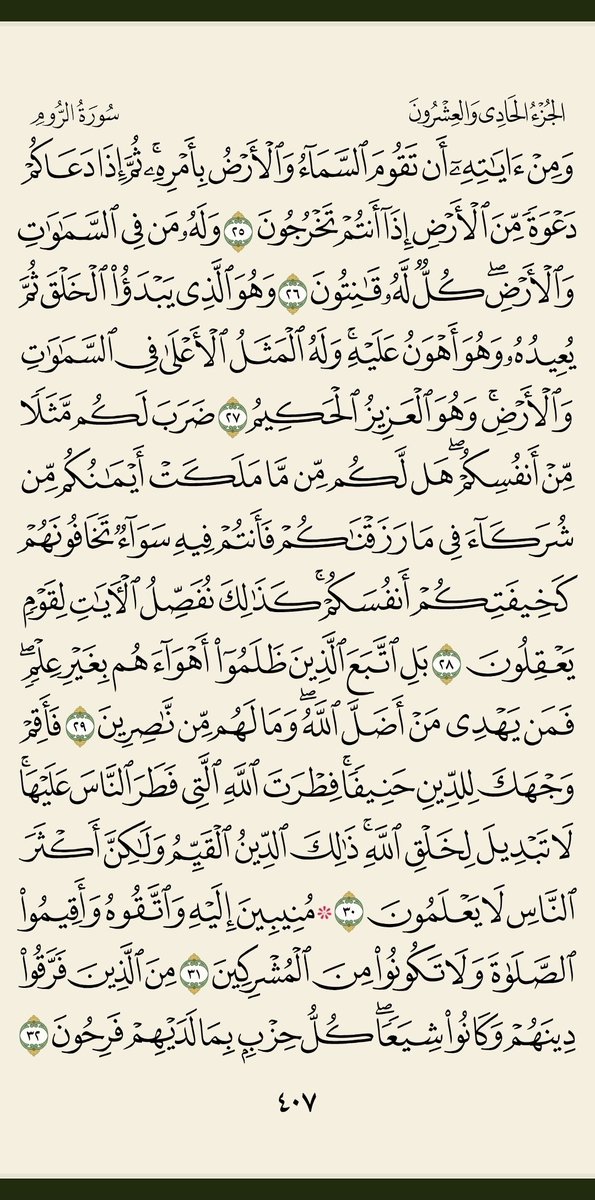 الجُزْءُ الحَادِي وَالعِشْرُونَ سُورَةُ الرُّومِ
وَمِنْ ءَايَٰتِهِۦٓ أَن تَقُومَ ٱلسَّمَآءُ وَٱلْأَرْضُ بِأَمْرِهِۦۚ ثُمَّ إِذَا دَعَاكُمْ
دَعْوَةً مِّنَ ٱلْأَرْضِ إِذَآ أَنتُمْ تَخْرُجُونَ ٢٥ وَلَهُۥ مَن فِى ٱلسَّمَٰوَٰتِ
وَٱلْأَرْضِۖ كُلٌّ لَّهُۥ قَٰنِتُونَ ٢٦ وَهُوَ ٱلَّذِى يَبْدَؤُا۟ ٱلْخَلْقَ ثُمَّ
يُعِيدُهُۥ وَهُوَ أَهْوَنُ عَلَيْهِۚ وَلَهُ ٱلْمَثَلُ ٱلْأَعْلَىٰ فِى ٱلسَّمَٰوَٰتِ
وَٱلْأَرْضِۚ وَهُوَ ٱلْعَزِيزُ ٱلْحَكِيمُ ٢٧ ضَرَبَ لَكُم مَّثَلًا
مِّنْ أَنفُسِكُمْۖ هَل لَّكُم مِّن مَّا مَلَكَتْ أَيْمَٰنُكُم مِّن
شُرَكَآءَ فِى مَا رَزَقْنَٰكُمْ فَأَنتُمْ فِيهِ سَوَآءٌ تَخَافُونَهُمْ
كَخِيفَتِكُمْ أَنفُسَكُمْۚ كَذَٰلِكَ نُفَصِّلُ ٱلْءَايَٰتِ لِقَوْمٍ
يَعْقِلُونَ ٢٨ بَلِ ٱتَّبَعَ ٱلَّذِينَ ظَلَمُوٓا۟ أَهْوَآءَهُم بِغَيْرِ عِلْمٍۖ
فَمَن يَهْدِى مَنْ أَضَلَّ ٱللَّهُۖ وَمَا لَهُم مِّن نَّٰصِرِينَ ٢٩ فَأَقِمْ
وَجْهَكَ لِلدِّينِ حَنِيفًاۚ فِطْرَتَ ٱللَّهِ ٱلَّتِى فَطَرَ ٱلنَّاسَ عَلَيْهَاۚ
لَا تَبْدِيلَ لِخَلْقِ ٱللَّهِۚ ذَٰلِكَ ٱلدِّينُ ٱلْقَيِّمُ وَلَٰكِنَّ أَكْثَرَ
ٱلنَّاسِ لَا يَعْلَمُونَ ٣٠ * مُنِيبِينَ إِلَيْهِ وَٱتَّقُوهُ وَأَقِيمُوا۟
ٱلصَّلَوٰةَ وَلَا تَكُونُوا۟ مِنَ ٱلْمُشْرِكِينَ ٣١ مِنَ ٱلَّذِينَ فَرَّقُوا۟
دِينَهُمْ وَكَانُوا۟ شِيَعًاۖ كُلُّ حِزْبٍۭ بِمَا لَدَيْهِمْ فَرِحُونَ ٣٢
٤٠٧